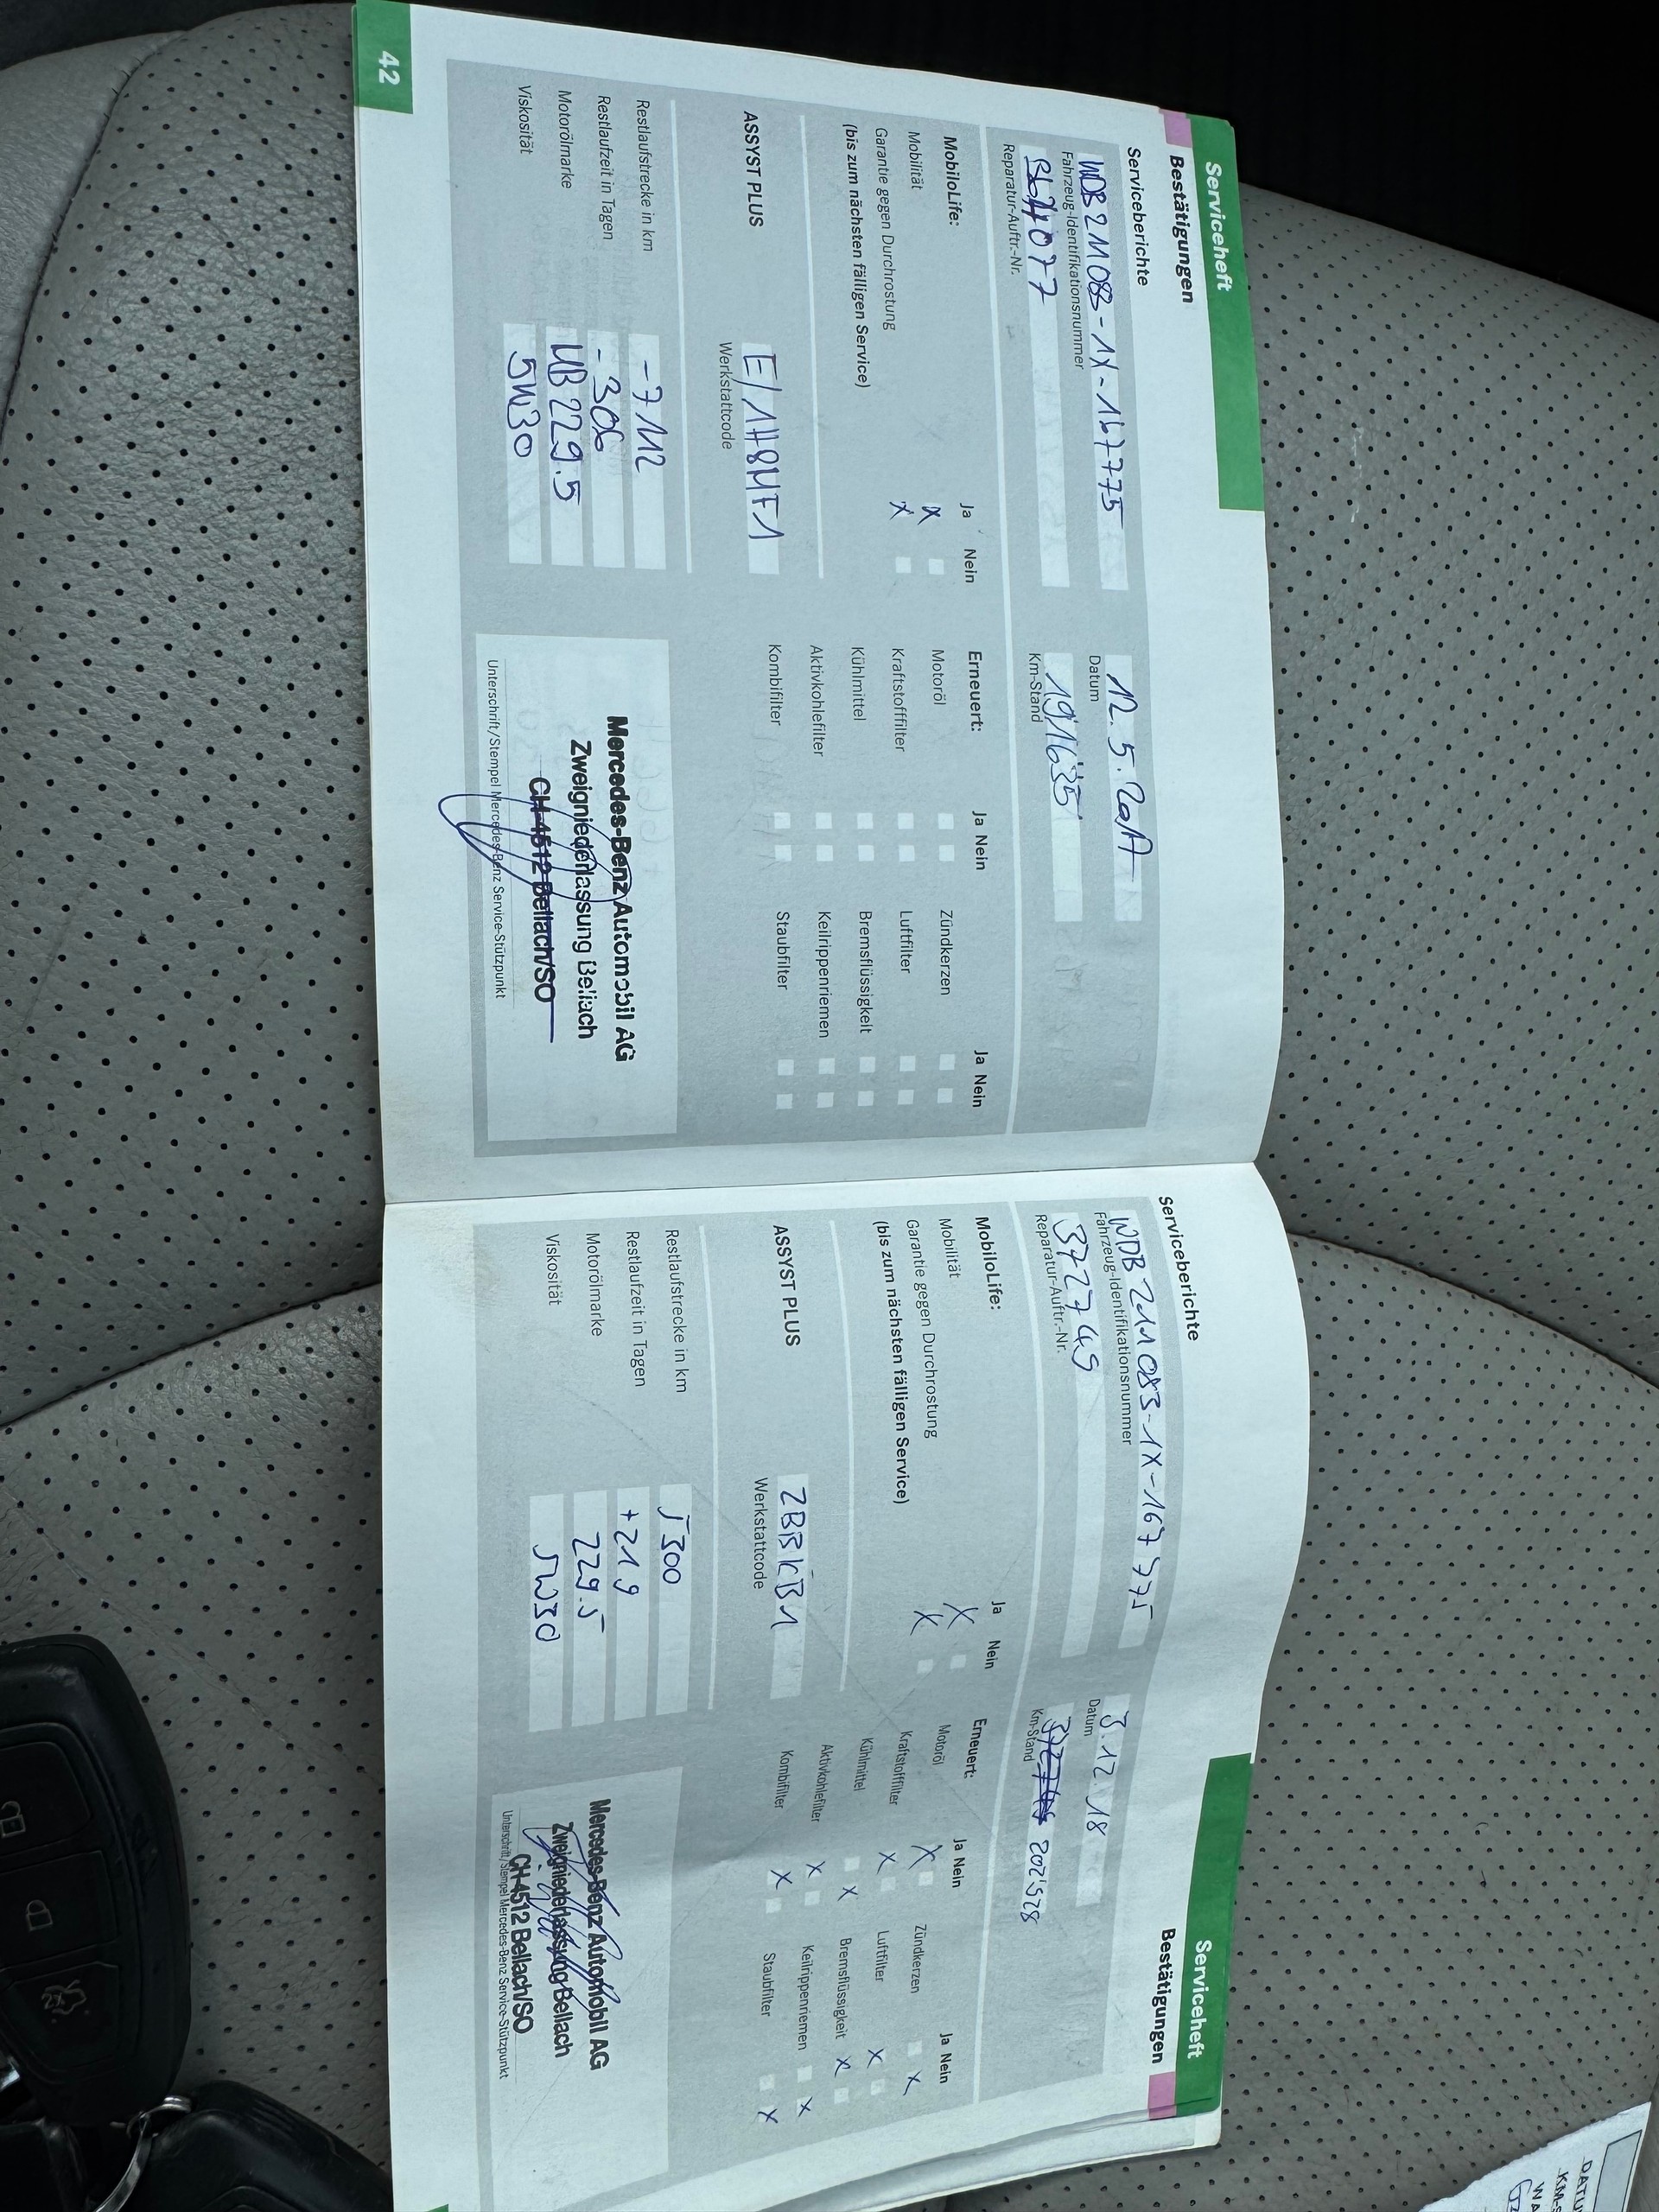 Serviceheft
Bestätigungen
Serviceberichte
Fahrzeug-Identifikationsnummer
Datum
12. 5.
Reparatur-Auftr.-Nr.
191'635
Km-Stand
MobiloLife:
Ja Nein
Mobilität
x
Garantie gegen Durchrostung
x
(bis zum nächsten fälligen Service)
Erneuert:
Ja Nein
Ja Nein
Motoröl
Zündkerzen
Kraftstofffilter
Luftfilter
Kühlmittel
Bremsflüssigkeit
Aktivkohlefilter
Keilrippenriemen
Kombifilter
Staubfilter
ASSYST PLUS
Werkstattcode
Restlaufstrecke in km
-7112
Restlaufzeit in Tagen
-306
Motorölmarke
MB 229.5
Viskosität
5W30
Mercedes-Benz Automobil AG
Zweigniederlassung Bellach
CH-4512 Bellach/SO
Unterschrift/Stempel Mercedes-Benz Service-Stützpunkt
42
Serviceheft
Bestätigungen
Serviceberichte
WDB 211083-1X-167775
Fahrzeug-Identifikationsnummer
3.12.18
Datum
372749
Reparatur-Auftr.-Nr.
202'528
Km-Stand
MobiloLife:
Ja Nein
Mobilität
X
Garantie gegen Durchrostung
X
(bis zum nächsten fälligen Service)
Erneuert:
Ja Nein
Ja Nein
Motoröl
X
Zündkerzen
X
Kraftstofffilter
X
Luftfilter
X
Kühlmittel
X
Bremsflüssigkeit
X
Aktivkohlefilter
X
Keilrippenriemen
X
Kombifilter
X
Staubfilter
X
ASSYST PLUS
ZBBKB1
Werkstattcode
Restlaufstrecke in km
5300
Restlaufzeit in Tagen
+219
Motorölmarke
229.5
Viskosität
5W30
Mercedes-Benz Automobil AG
Zweigniederlassung Bellach
CH-4512 Bellach/SO
Unterschrift/Stempel Mercedes-Benz Service-Stützpunkt